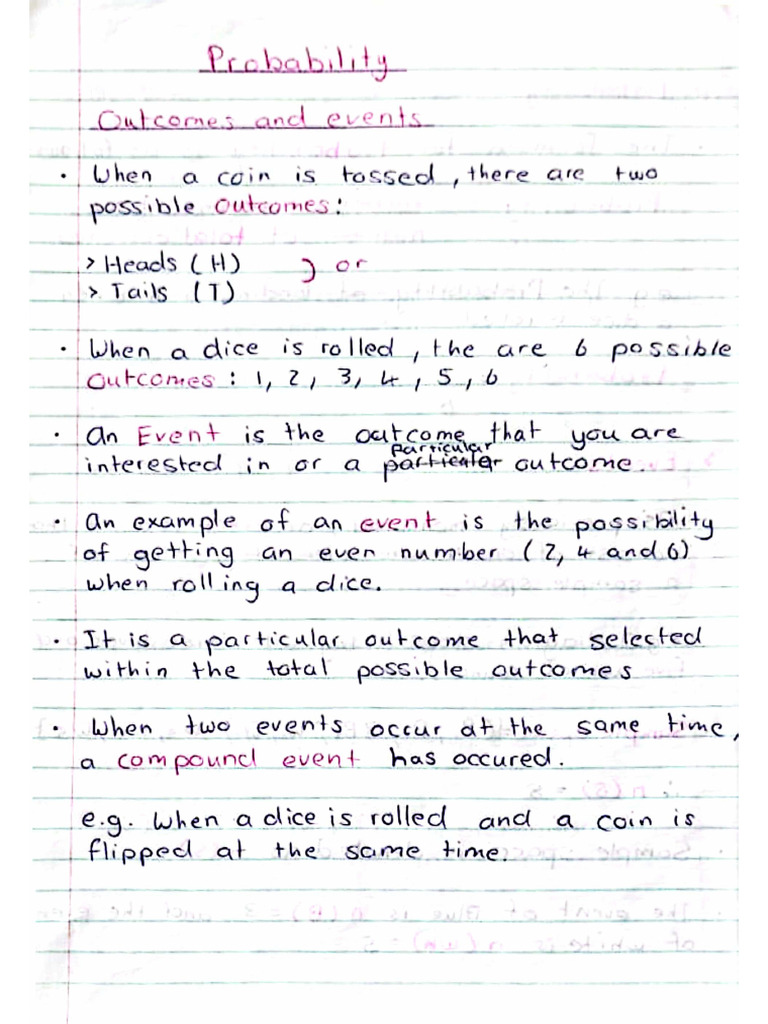 Probability
Outcomes and events
• When a coin is tossed, there are two
possible Outcomes:
> Heads (H) } or
> Tails (T)
• When a dice is rolled, the are 6 possible
Outcomes: 1, 2, 3, 4, 5, 6
• An Event is the outcome that you are
particular
interested in or a particular outcome.
• An example of an event is the possibility
of getting an even number (2, 4 and 6)
when rolling a dice.
• It is a particular outcome that selected
within the total possible outcomes
• When two events occur at the same time,
a compound event has occured.
e.g. When a dice is rolled and a coin is
flipped at the same time.